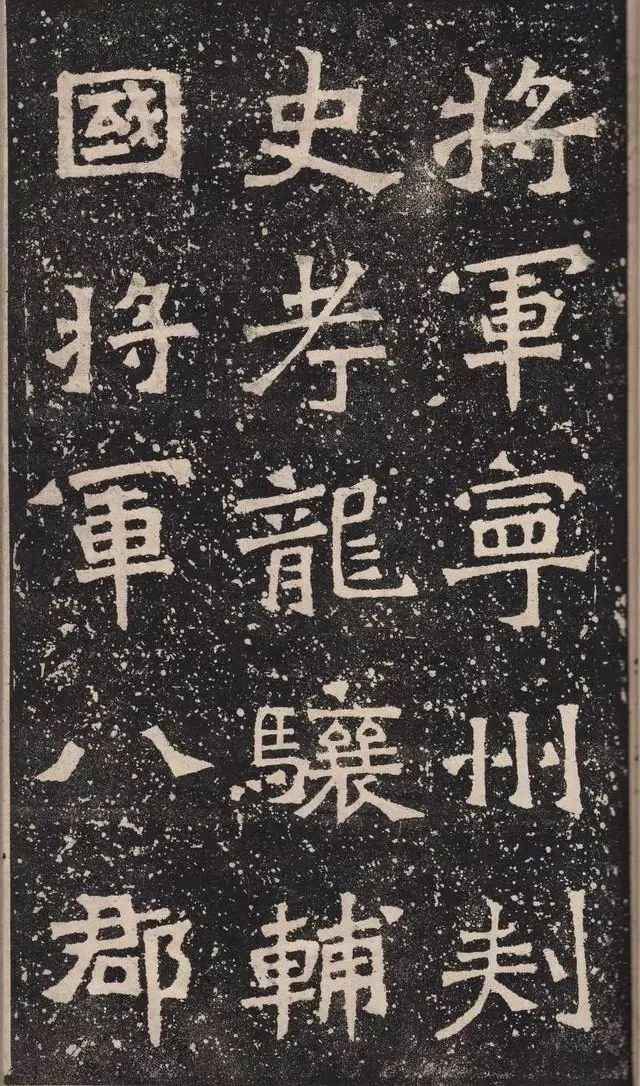 將軍寧州刾
史考龍驤輔
國將軍八郡